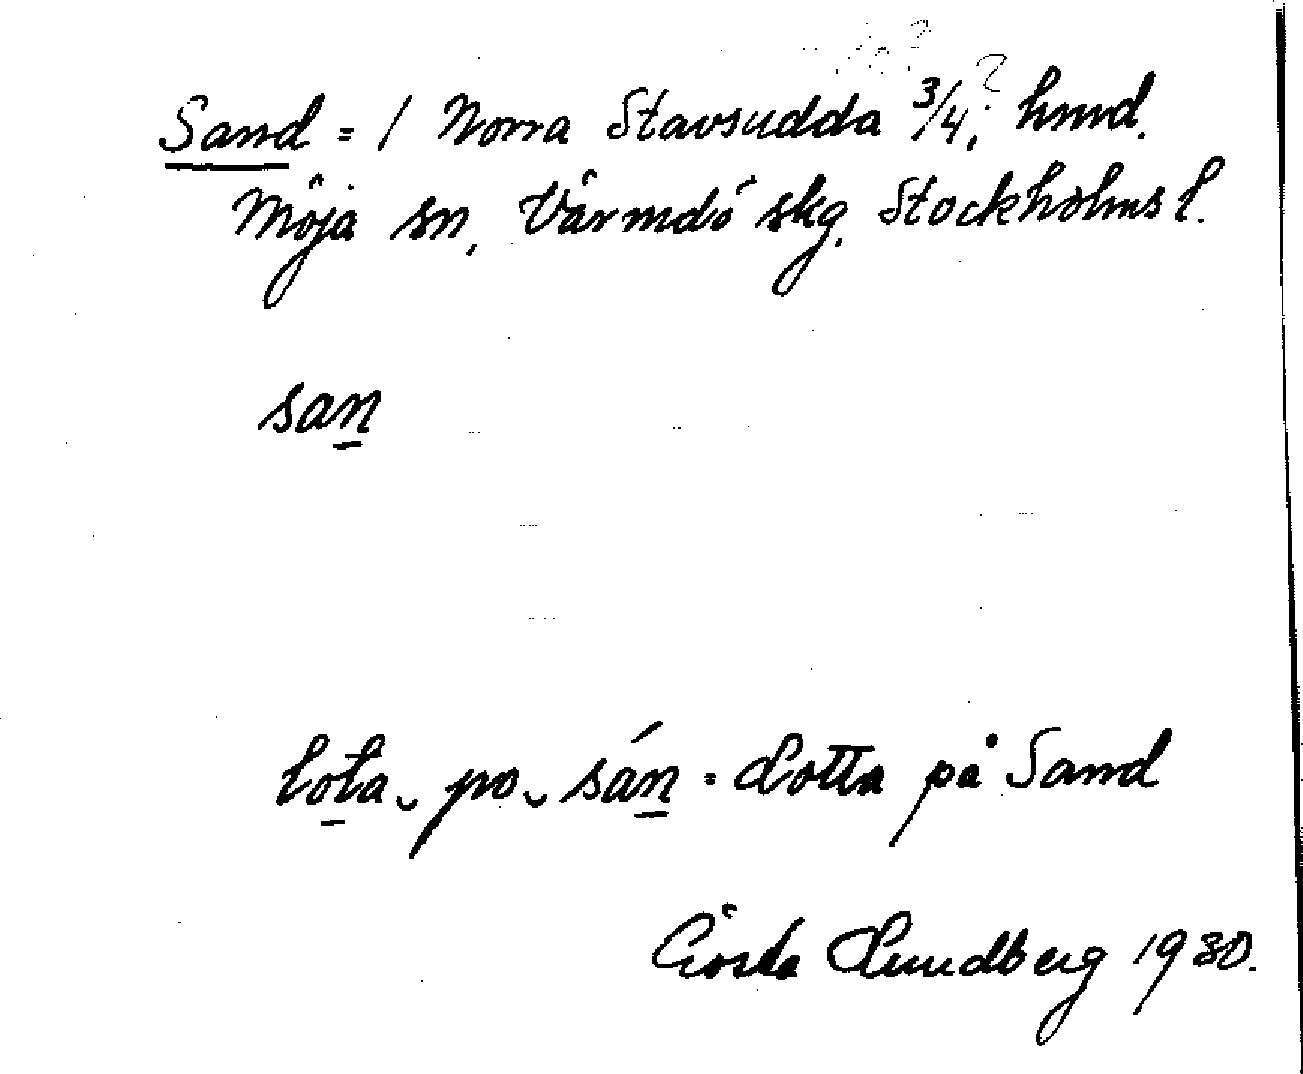 Sand = / Norra Stavsudda 3/4; hmd.
Möja sn, Värmdö skg. Stockholms l.
san
lota ̮ po ̮ sán = Lotta på Sand
Gösta Lundberg 1930.